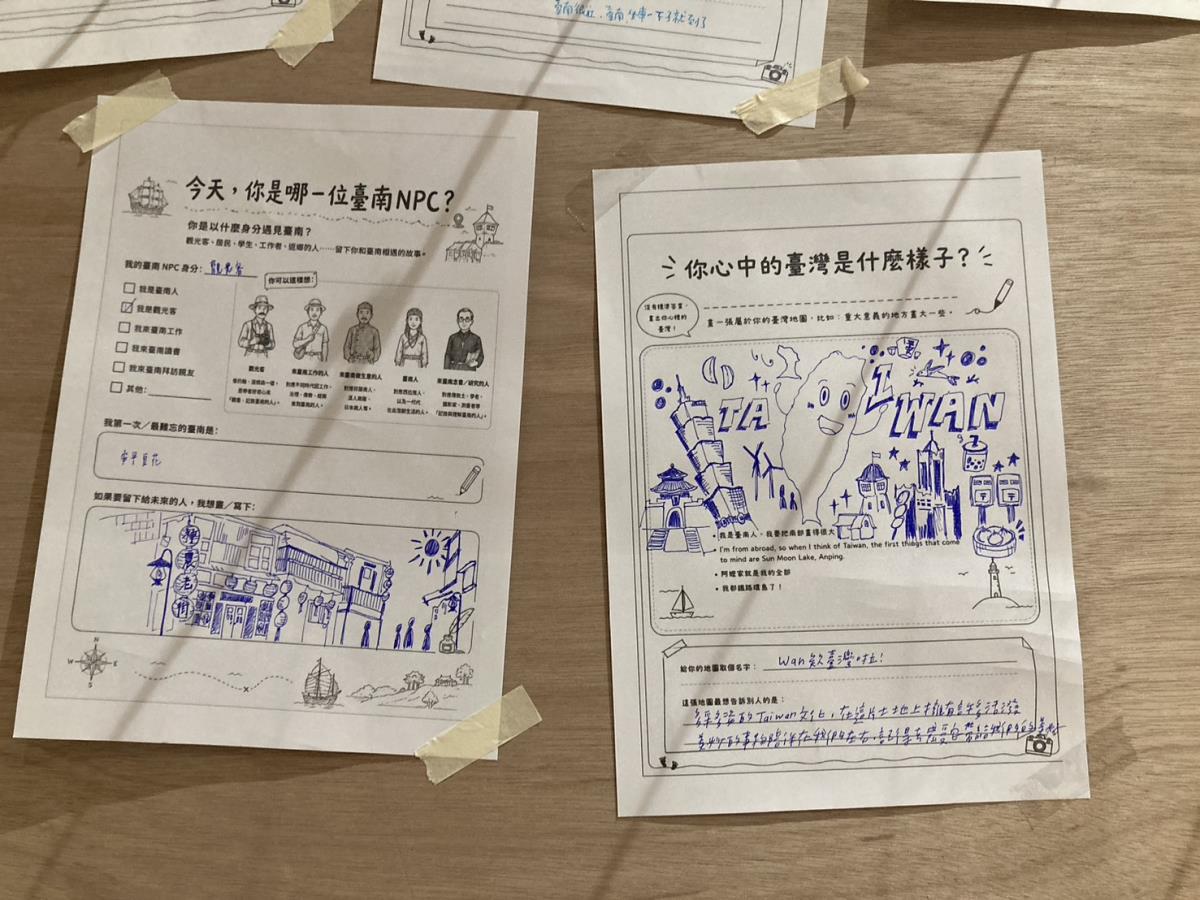 臺南很近,臺南坐車一下子就到了
今天,你是哪一位臺南NPC?
你是以什麼身分遇見臺南?
觀光客、居民、學生、工作者、返鄉的人……留下你和臺南相遇的故事。
我的臺南 NPC 身分: 觀光客
你可以這樣想:
我是臺南人
我是觀光客
我來臺南工作
我來臺南讀書
我來臺南拜訪親友
其他:
觀光客
來臺南工作的人
來臺南做生意的人
臺南人
來臺南念書/研究的人
我第一次/最難忘的臺南是:
安平豆花
如果要留下給未來的人,我想畫/寫下:
神農老街
N
W
E
S
你心中的臺灣是什麼樣子?
沒有標準答案,
畫出你心裡的
臺灣!
畫一張屬於你的臺灣地圖,比如:重大意義的地方畫大一些。
TAIWAN
• 我是臺南人,我要把南部畫得很大
• I'm from abroad, so when I think of Taiwan, the first things that come
to mind are Sun Moon Lake, Anping.
• 阿嬤家就是我的全部
• 我都鐵路環島了!
給你的地圖取個名字: Wan欸臺灣啦!
這張地圖最想告訴別人的是:
多采多姿的Taiwan文化,在這片土地上擁有許多活潑
美妙的事物陪伴在我們左右,